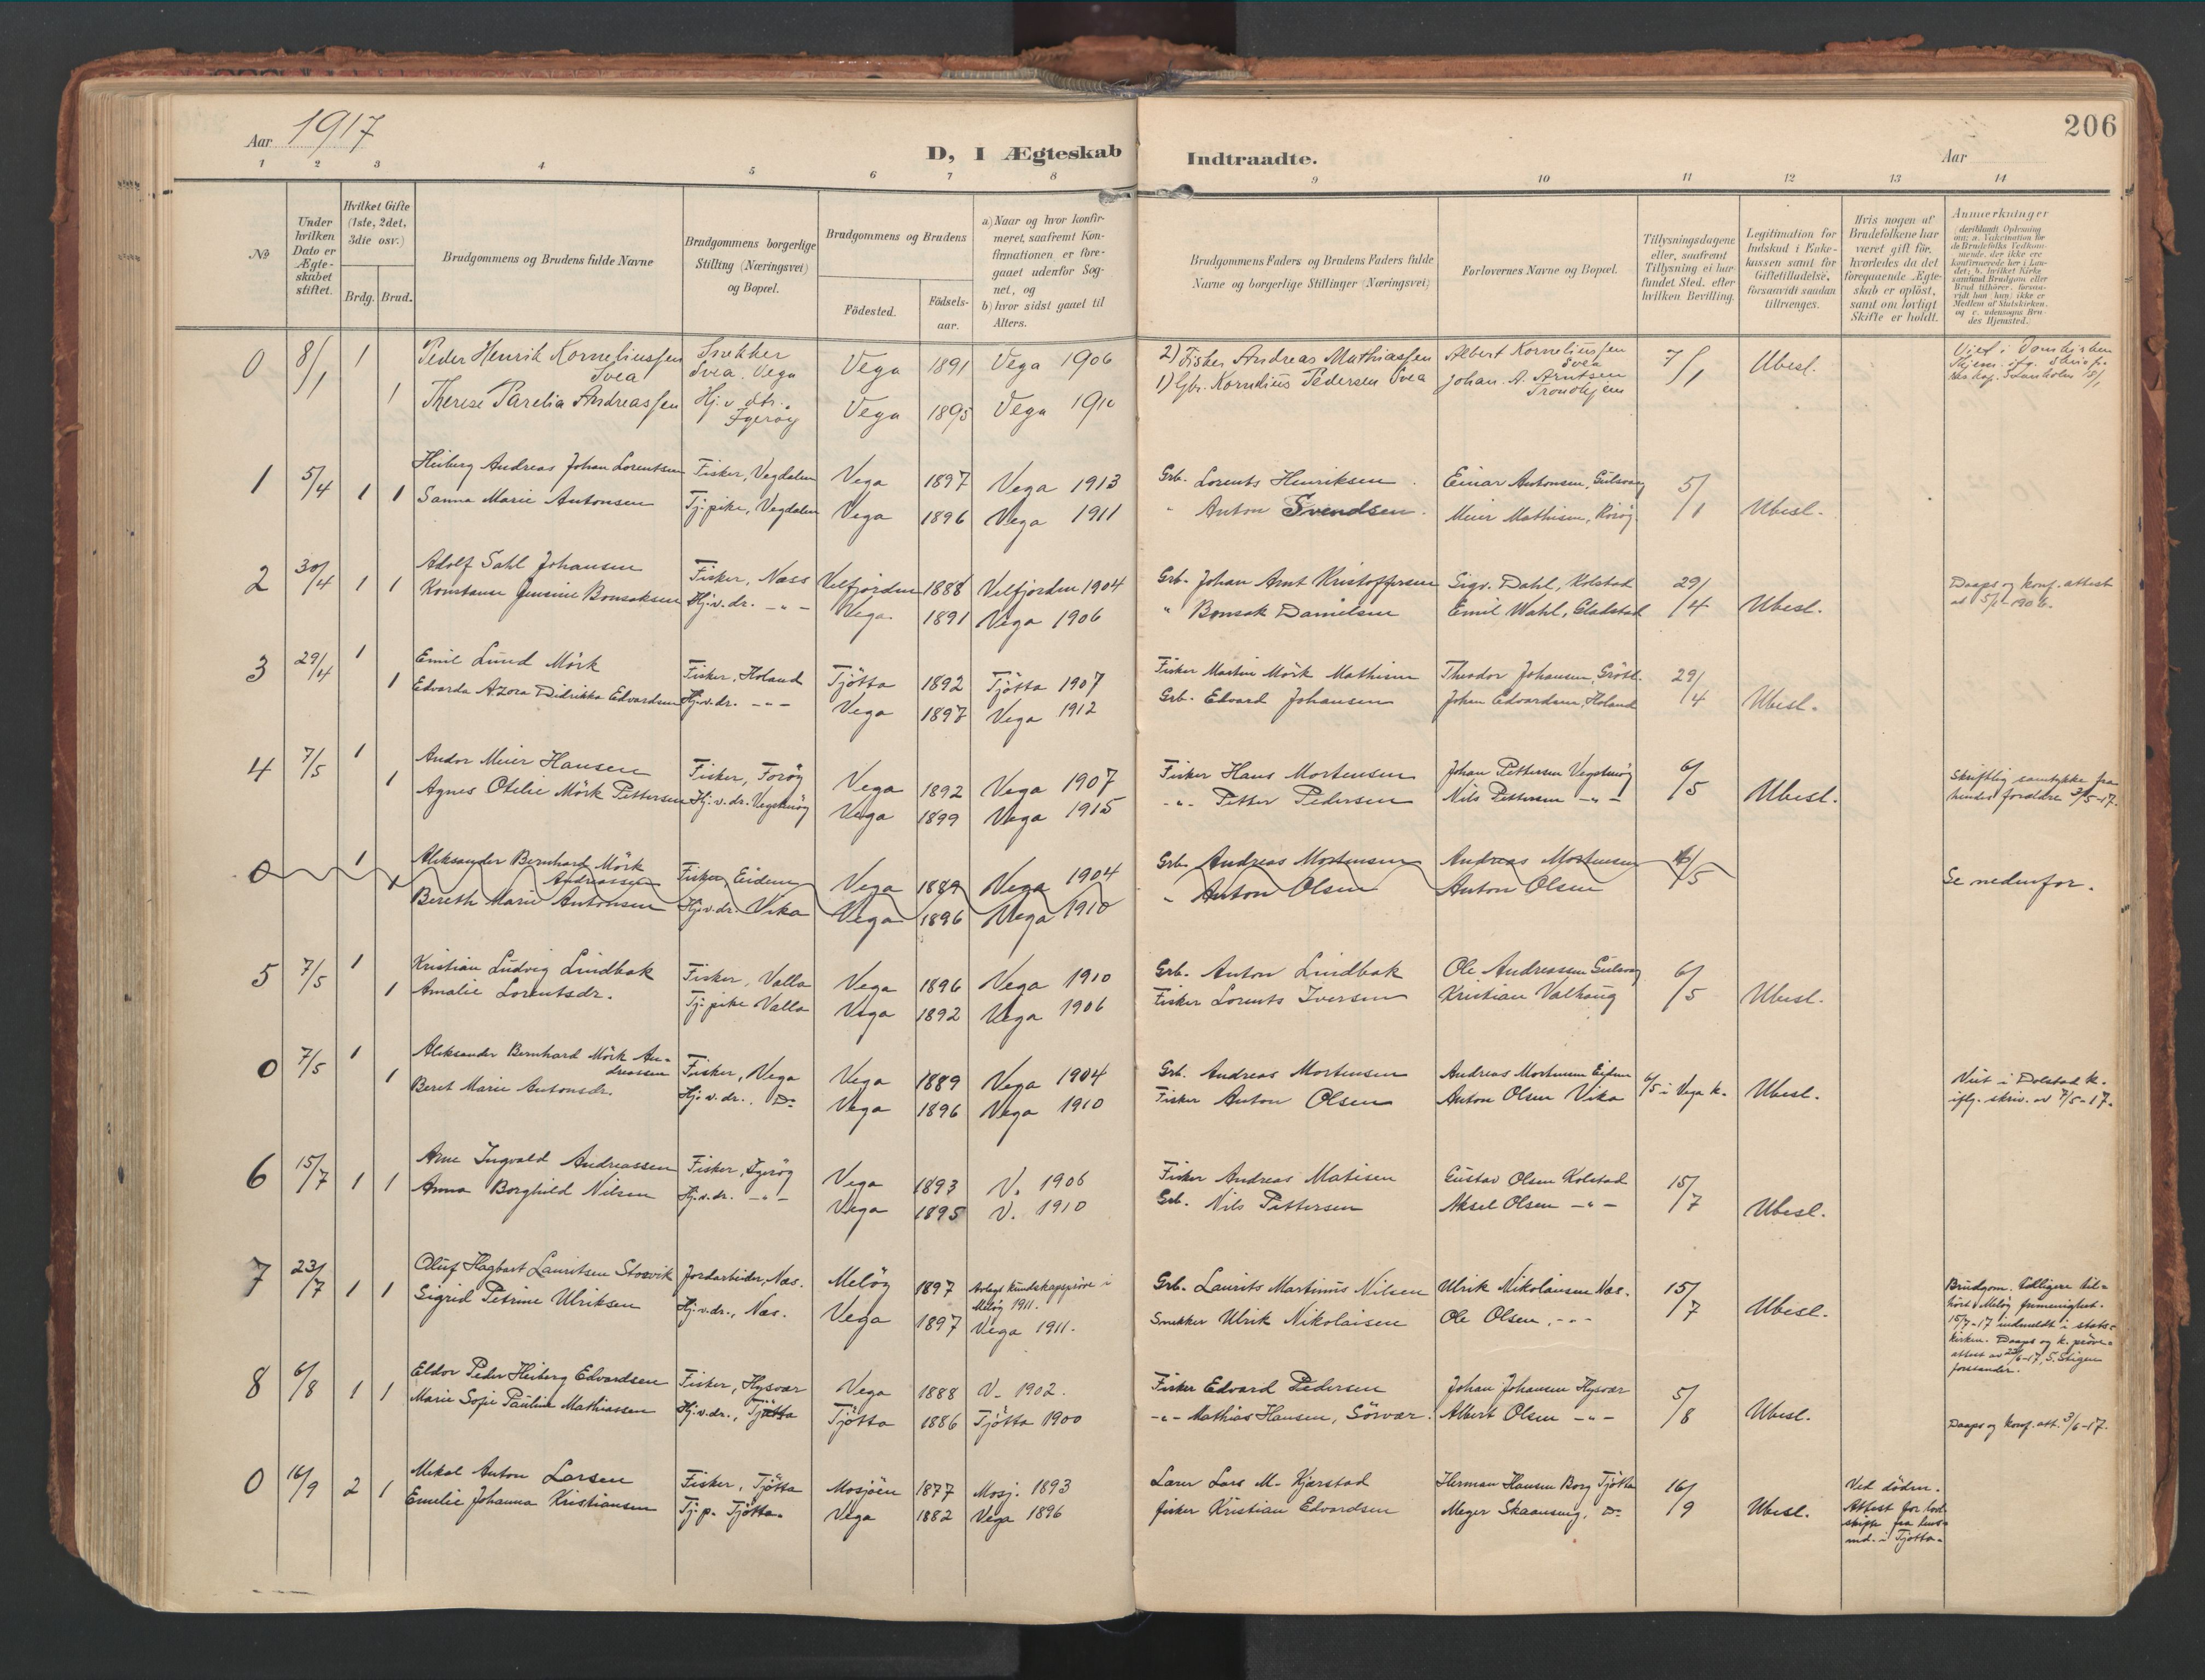 Aar 1917
D, I Ægteskab Indtraadte.
Aar
206
1 2 3 4 5 6 7 8 9 10 11 12 13 14
№
Under hvilken Dato er Ægteskabet stiftet.
Hvilket Gifte (1ste, 2det, 3die osv.)
Brdg. Brud.
Brudgommens og Brudens fulde Navne
Brudgommens borgerlige Stilling (Næringsvei) og Bopæl.
Brudgommens og Brudens
Födested.
Födsels-aar.
a) Naar og hvor konfirmeret, saafremt Konfirmationen er foregaaet udenfor Sognet, og
b) hvor sidst gaaet til Alters.
Brudgommens Faders og Brudens Faders fulde Navne og borgerlige Stillinger (Næringsvei)
Forlovernes Navne og Bopæl.
Tillysningsdagene eller, saafremt Tillysning ei har fundet Sted, efter hvilken Bevilling.
Legitimation for Indskud i Enkekassen samt for Giftetilladelse, forsaavidt saadan tiltrænges.
Hvis nogen af Brudefolkene har været gift för, hvorledes da det foregaaende Ægteskab er oplöst, samt om lovligt Skifte er holdt.
Anmerkninger
0 8/1 1 Peder Henrik Korneliussen Svea Snekker Svea. Vega Vega 1891 Vega 1906 2) Fisker Andreas Mathiassen Albert Korneliussen Svea 7/1 Ubesl.
1 Therese Parelia Andreassen Hj. v. dtr. Ygeröy Vega 1895 Vega 1910 1) Gbr. Kornelius Pedersen Svea Johan A. Arntsen Trondhjem
1 5/4 1 1 Heiberg Andreas Johan Lorentsen Fisker, Vegdalen Vega 1897 Vega 1913 Grb. Lorents Henriksen Einar Antonsen, Gulsvaag 5/1 Ubesl.
Sanna Marie Antonsen Tj. pike, Vegdalen Vega 1896 Vega 1911 " Anton Svendsen Meier Mathisen, Rörög
2 30/4 1 1 Adolf Sahl Johansen Fisker, Næss Velfjorden 1888 Velfjorden 1904 Grb. Johan Arnt Kristoffersen Sigv. Dahl, Kolstad 29/4 Ubesl. Daaps og konf. attest
Konstanse Jensine Bonsaksen Hj. v. dr. -"- Vega 1891 Vega 1906 " Bonsak Danielsen Emil Wahl, Gladstad
3 29/4 1 Emil Lund Mörk Fisker, Holand Tjötta 1892 Tjötta 1907 Fisker Martin Mörk Mathisen Theodor Johansen, Gröttl. 29/4 Ubesl.
1 Edvarda Azora Didrikke Edvardsen Hj. v. dr. -"- Vega 1897 Vega 1912 Grb. Edvard Johansen Johan Edvardsen, Holand
4 7/5 1 Andor Meier Hansen Fisker, Foröy Vega 1892 Vega 1907 Fisker Hans Mortensen Johan Pettersen Vegstenöy 6/5 Ubesl. Skriftlig samtykke fra
1 Agnes Otelie Mörk Pettersen Hj. v. dr. Vegstenöy Vega 1899 Vega 1915 -"- Petter Pedersen Nils Pettersen -"- hendes forældre 3/5-17.
0 1 Aleksander Bernhard Mörk Andreassen Fisker Eidem Vega 1889 Vega 1904 Grb. Andreas Mortensen Andreas Mortensen 6/5 Se nedenfor.
1 Bereth Marie Antonsen Hj. v. dr. Vika Vega 1896 Vega 1910 " Anton Olsen Anton Olsen
5 7/5 1 Kristian Ludvig Lindbak Fisker, Valla Vega 1896 Vega 1910 Grb. Anton Lindbak Ole Andreassen Gulsvaag 6/5 Ubesl.
1 Amalie Lorentsdr. Tj. pike Valla Vega 1892 Vega 1906 Fisker Lorents Iversen Kristian Valhaug
0 7/5 1 Aleksander Bernhard Mörk Andreassen Fisker, Vega Vega 1889 Vega 1904 Grb. Andreas Mortensen Andreas Mortensen Eidem 6/5 i Vega k. Ubesl. Viet i Dolstad k.
1 Beret Marie Antonsdr. Hj. v. dr. Do Vega 1896 Vega 1910 Fisker Anton Olsen Anton Olsen Vika iflg. skriv. av 7/5-17.
6 15/7 1 1 Arne Ingvald Andreassen Fisker, Ygeröy Vega 1893 V. 1906 Fisker Andreas Matisen Gustav Olsen Kolstad 15/7 Ubesl.
Anna Borghild Nilsen Hj. v. dr. -"- Vega 1895 V. 1910 Grb. Nils Pettersen Aksel Olsen -"-
7 23/7 1 1 Oluf Hagbart Lauritsen Storvik Jordarbeider, Næs. Melöy 1897 Avlagt kundskapspröve i Melöy 1911. Grb. Laurits Martinus Nilsen Ulrik Nikolaisen Næs. 15/7 Ubesl.
Sigrid Petrine Ulriksen Hj. v. dr., Næs. Vega 1897 Vega 1911. Snekker Ulrik Nikolaisen Ole Olsen, -"-
Brudgom. tidligere tilhört Melöy frimenighet.
15/7-17 indmeldt i statskirken. Daaps og k. pröveattest av 23/6-17, S. Stigen forstander.
8 6/8 1 1 Eldor Peder Heiberg Edvardsen Fisker, Hysvær Vega 1888 V. 1902. Fisker Edvard Pedersen Johan Johansen Hysvær 5/8 Ubesl.
Marie Sofie Pauline Mathiassen Hj. v. dr., Tjötta Tjötta 1886 Tjötta 1900 -"- Mathias Hansen, Sörvær. Albert Olsen -"- Daaps og konf. att. 3/6-17.
0 16/9 2 1 Mekal Anton Larsen Fisker, Tjötta Mosjöen 1877 Mosj. 1893 Lærer Lars M. Kjærstad Herman Hansen Borg Tjötta 16/9 Ubesl. Ved döden.
Emelie Johanna Kristiansen Tj. p. Tjötta. Vega 1882 Vega 1896 fisker Kristian Edvardsen Meyer Skaanseng, Do
Attest for skifte fra i Tjötta.